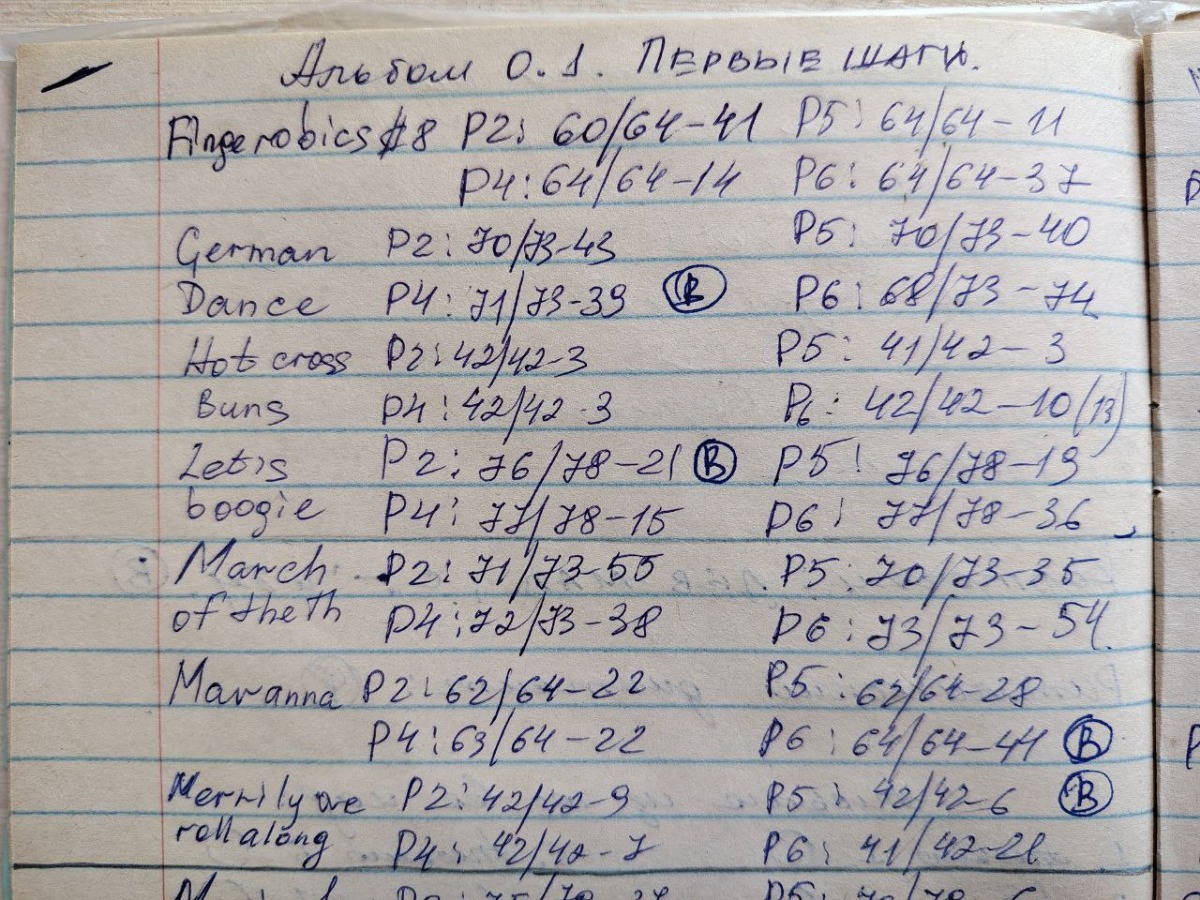 Альбом 0.1. ПЕРВЫЕ ШАГИ.
Fingerobics #8 P2: 60/64-41 P5: 64/64-11
P4: 64/64-14 P6: 64/64-37
German P2: 70/73-43 P5: 70/73-40
Dance P4: 71/73-39 (B) P6: 68/73-74
Hot cross P2: 42/42-3 P5: 41/42-3
Buns P4: 42/42-3 P6: 42/42-10(13)
Let's P2: 76/78-21 (B) P5: 76/78-19
boogie P4: 77/78-15 P6: 77/78-36
March P2: 71/73-55 P5: 70/73-35
of the th P4: 72/73-38 P6: 73/73-54
Maranna P2: 62/64-22 P5: 62/64-28
P4: 63/64-22 P6: 64/64-41 (B)
Merrily we P2: 42/42-9 P5: 42/42-6 (B)
roll along P4: 42/42-7 P6: 41/42-21